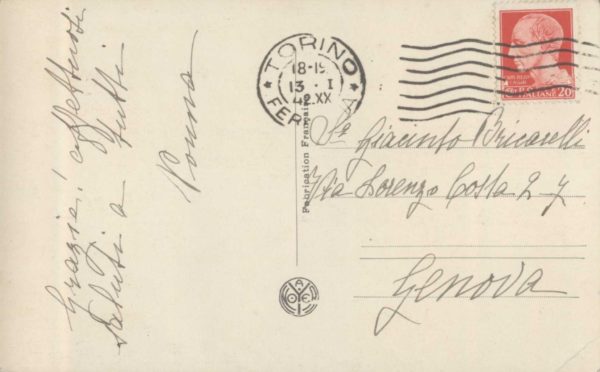 Grazie! affettuosi
Saluti a tutti
TORINO
18-19
13 . I
42.XX
FERROVIA
POSTE ITALIANE 20
Fabrication Française
Giacinto Bricarelli
Via Lorenzo Costa 2-7
Genova